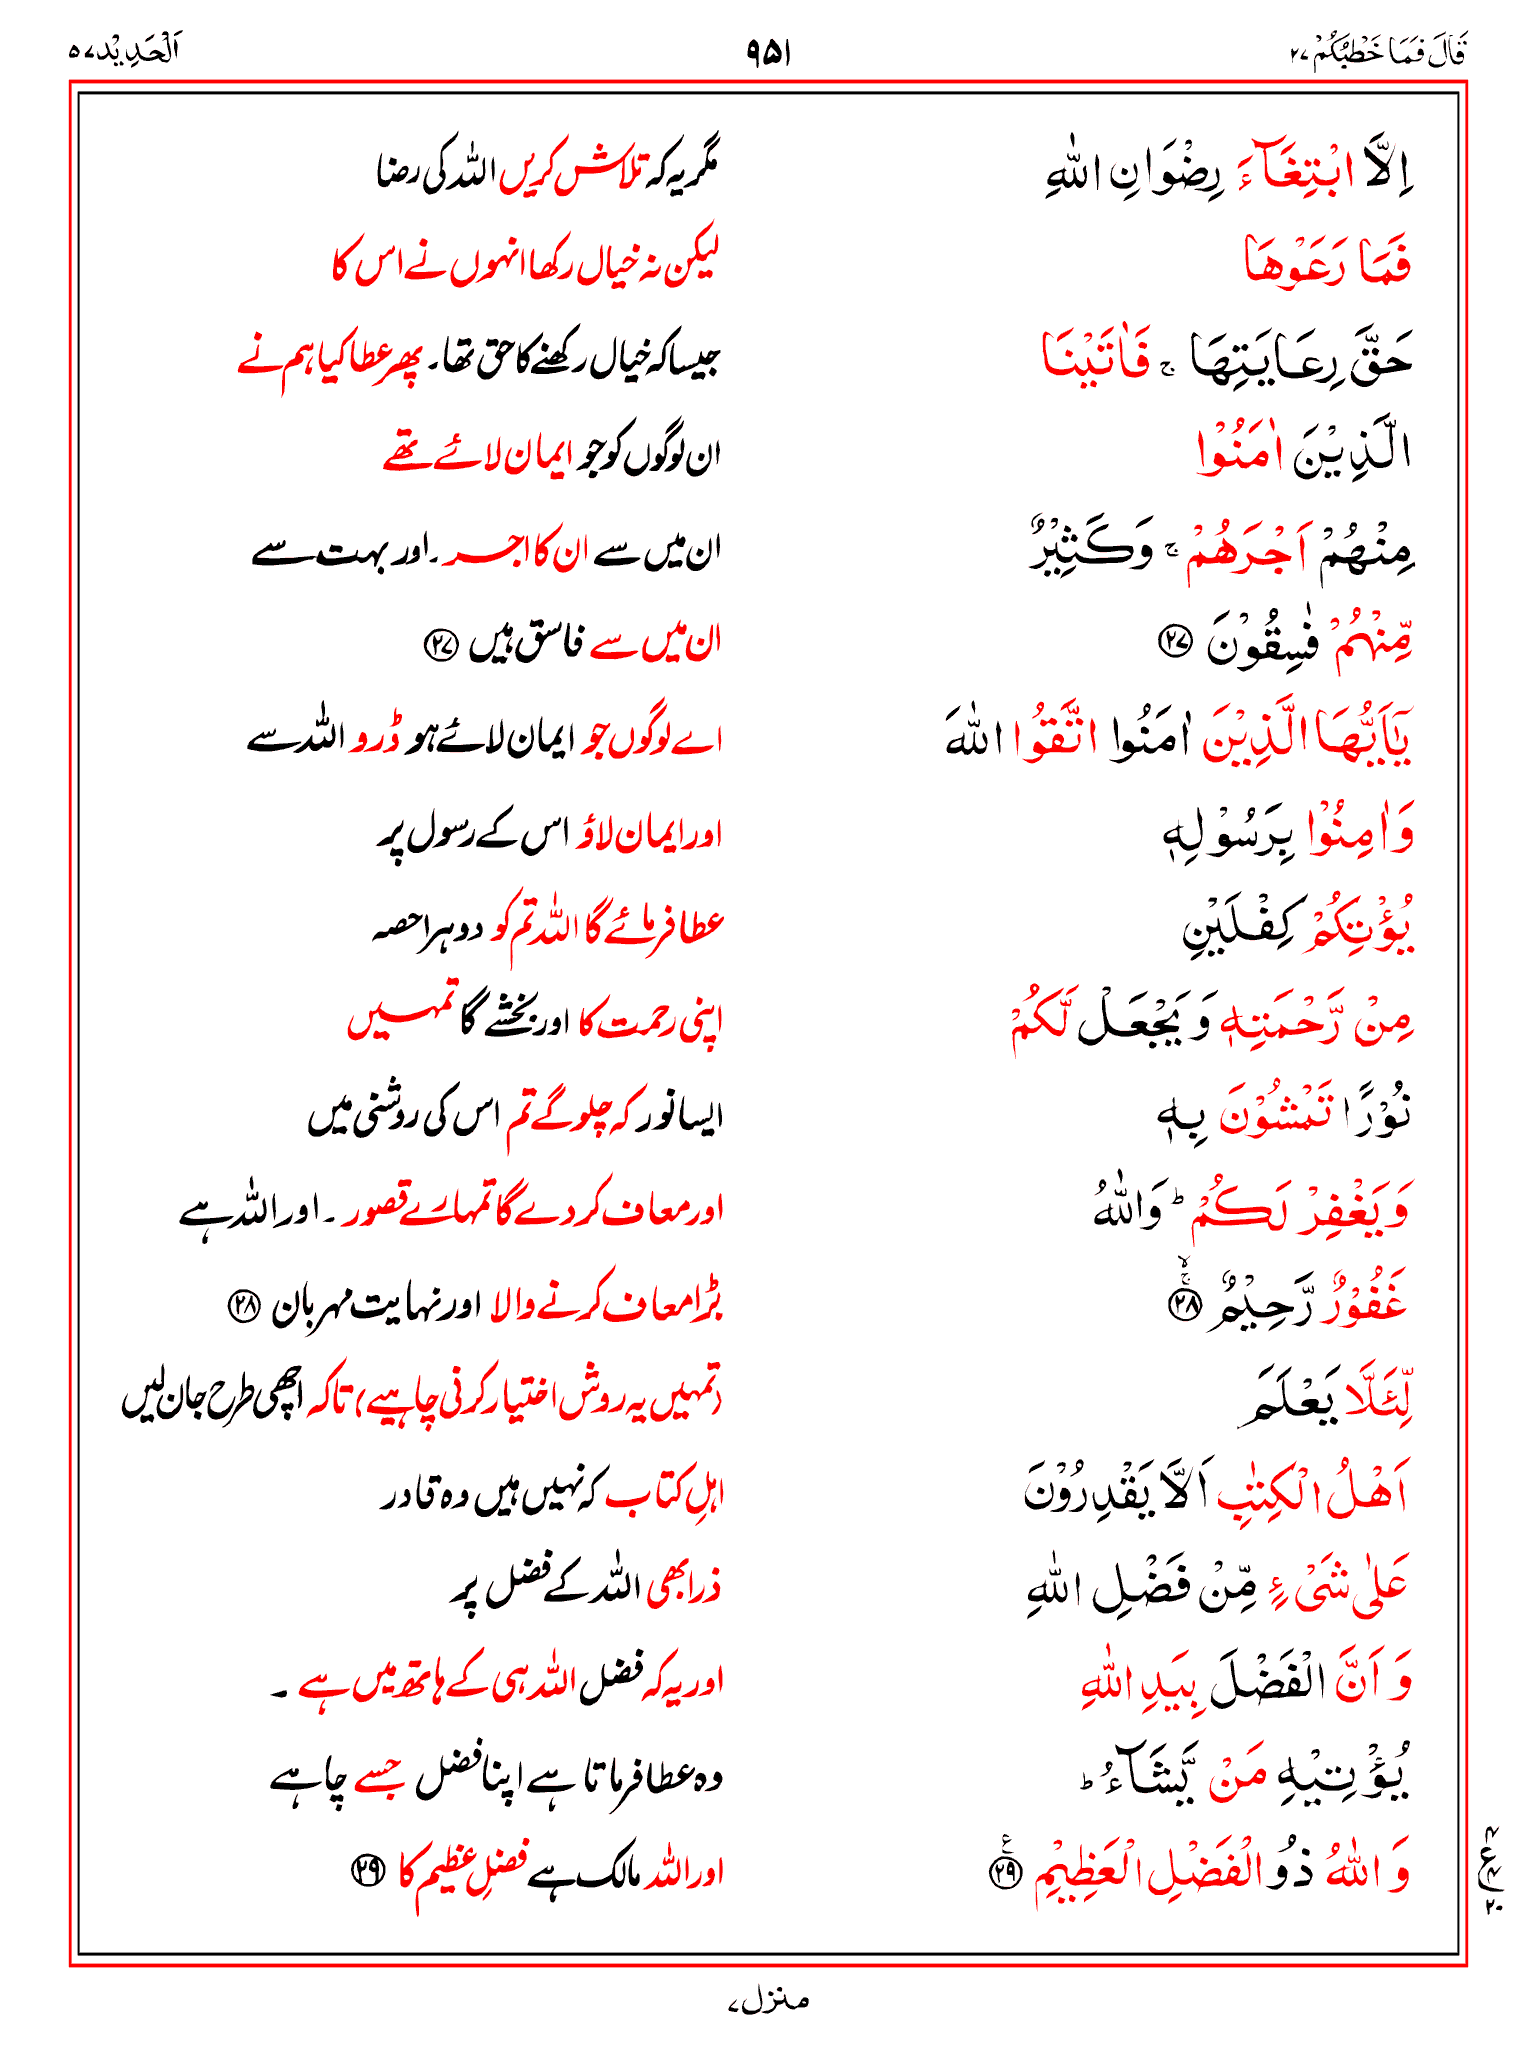 قَالَ فَمَا خَطْبُكُمْ ۲۷
۹۵۱
اَلْحَدِيْد ۵۷
اِلَّا ابْتِغَآءَ رِضْوَانِ اللّٰهِ مگر یہ کہ تلاش کریں اللہ کی رضا
فَمَا رَعَوْهَا لیکن نہ خیال رکھا انہوں نے اس کا
حَقَّ رِعَايَتِهَا ۚ فَاٰتَيْنَا جیسا کہ خیال رکھنے کا حق تھا۔ پھر عطا کیا ہم نے
الَّذِيْنَ اٰمَنُوْا ان لوگوں کو جو ایمان لائے تھے
مِنْهُمْ اَجْرَهُمْ ۚ وَكَثِيْرٌ ان میں سے ان کا اجر۔ اور بہت سے
مِّنْهُمْ فٰسِقُوْنَ ﴿۲۷﴾ ان میں سے فاسق ہیں ﴿۲۷﴾
يٰۤاَيُّهَا الَّذِيْنَ اٰمَنُوا اتَّقُوا اللّٰهَ اے لوگوں جو ایمان لائے ہو ڈرو اللہ سے
وَاٰمِنُوْا بِرَسُوْلِهٖ اور ایمان لاؤ اس کے رسول پر
يُؤْتِكُمْ كِفْلَيْنِ عطا فرمائے گا اللہ تم کو دوہرا حصہ
مِنْ رَّحْمَتِهٖ وَيَجْعَلْ لَّكُمْ اپنی رحمت کا اور بخشے گا تمہیں
نُوْرًا تَمْشُوْنَ بِهٖ ایسا نور کہ چلو گے تم اس کی روشنی میں
وَيَغْفِرْ لَكُمْ ؕ وَاللّٰهُ اور معاف کر دے گا تمہارے قصور۔ اور اللہ ہے
غَفُوْرٌ رَّحِيْمٌ ﴿۲۸﴾ۚۙ بڑا معاف کرنے والا اور نہایت مہربان ﴿۲۸﴾
لِّئَلَّا يَعْلَمَ (تمہیں یہ روش اختیار کرنی چاہیے) تاکہ اچھی طرح جان لیں
اَهْلُ الْكِتٰبِ اَلَّا يَقْدِرُوْنَ اہلِ کتاب کہ نہیں ہیں وہ قادر
عَلٰى شَيْءٍ مِّنْ فَضْلِ اللّٰهِ ذرا بھی اللہ کے فضل پر
وَ اَنَّ الْفَضْلَ بِيَدِ اللّٰهِ اور یہ کہ فضل اللہ ہی کے ہاتھ میں ہے۔
يُؤْتِيْهِ مَنْ يَّشَآءُ ؕ وہ عطا فرماتا ہے اپنا فضل جسے چاہے
وَ اللّٰهُ ذُو الْفَضْلِ الْعَظِيْمِ ﴿۲۹﴾ع اور اللہ مالک ہے فضلِ عظیم کا ﴿۲۹﴾
۴
ع
۴
۲۰
منزل ۷